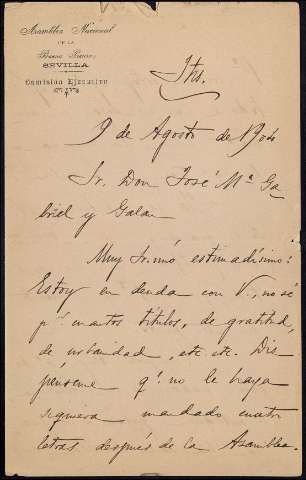 Asamblea Nacional
DE LA
Buena Prensa
SEVILLA
Comisión Ejecutiva
Jhs.
9 de Agosto de 1904
Sr. Don José Mª Ga-
briel y Galan
Muy Sr. mío estimadísimo:
Estoy en deuda con V., no sé
pr. cuantos títulos, de gratitud,
de urbanidad, etc. etc. Dis-
pénseme qe. no le haya
siquiera mandado cuatro
letras después de la Asamblea.